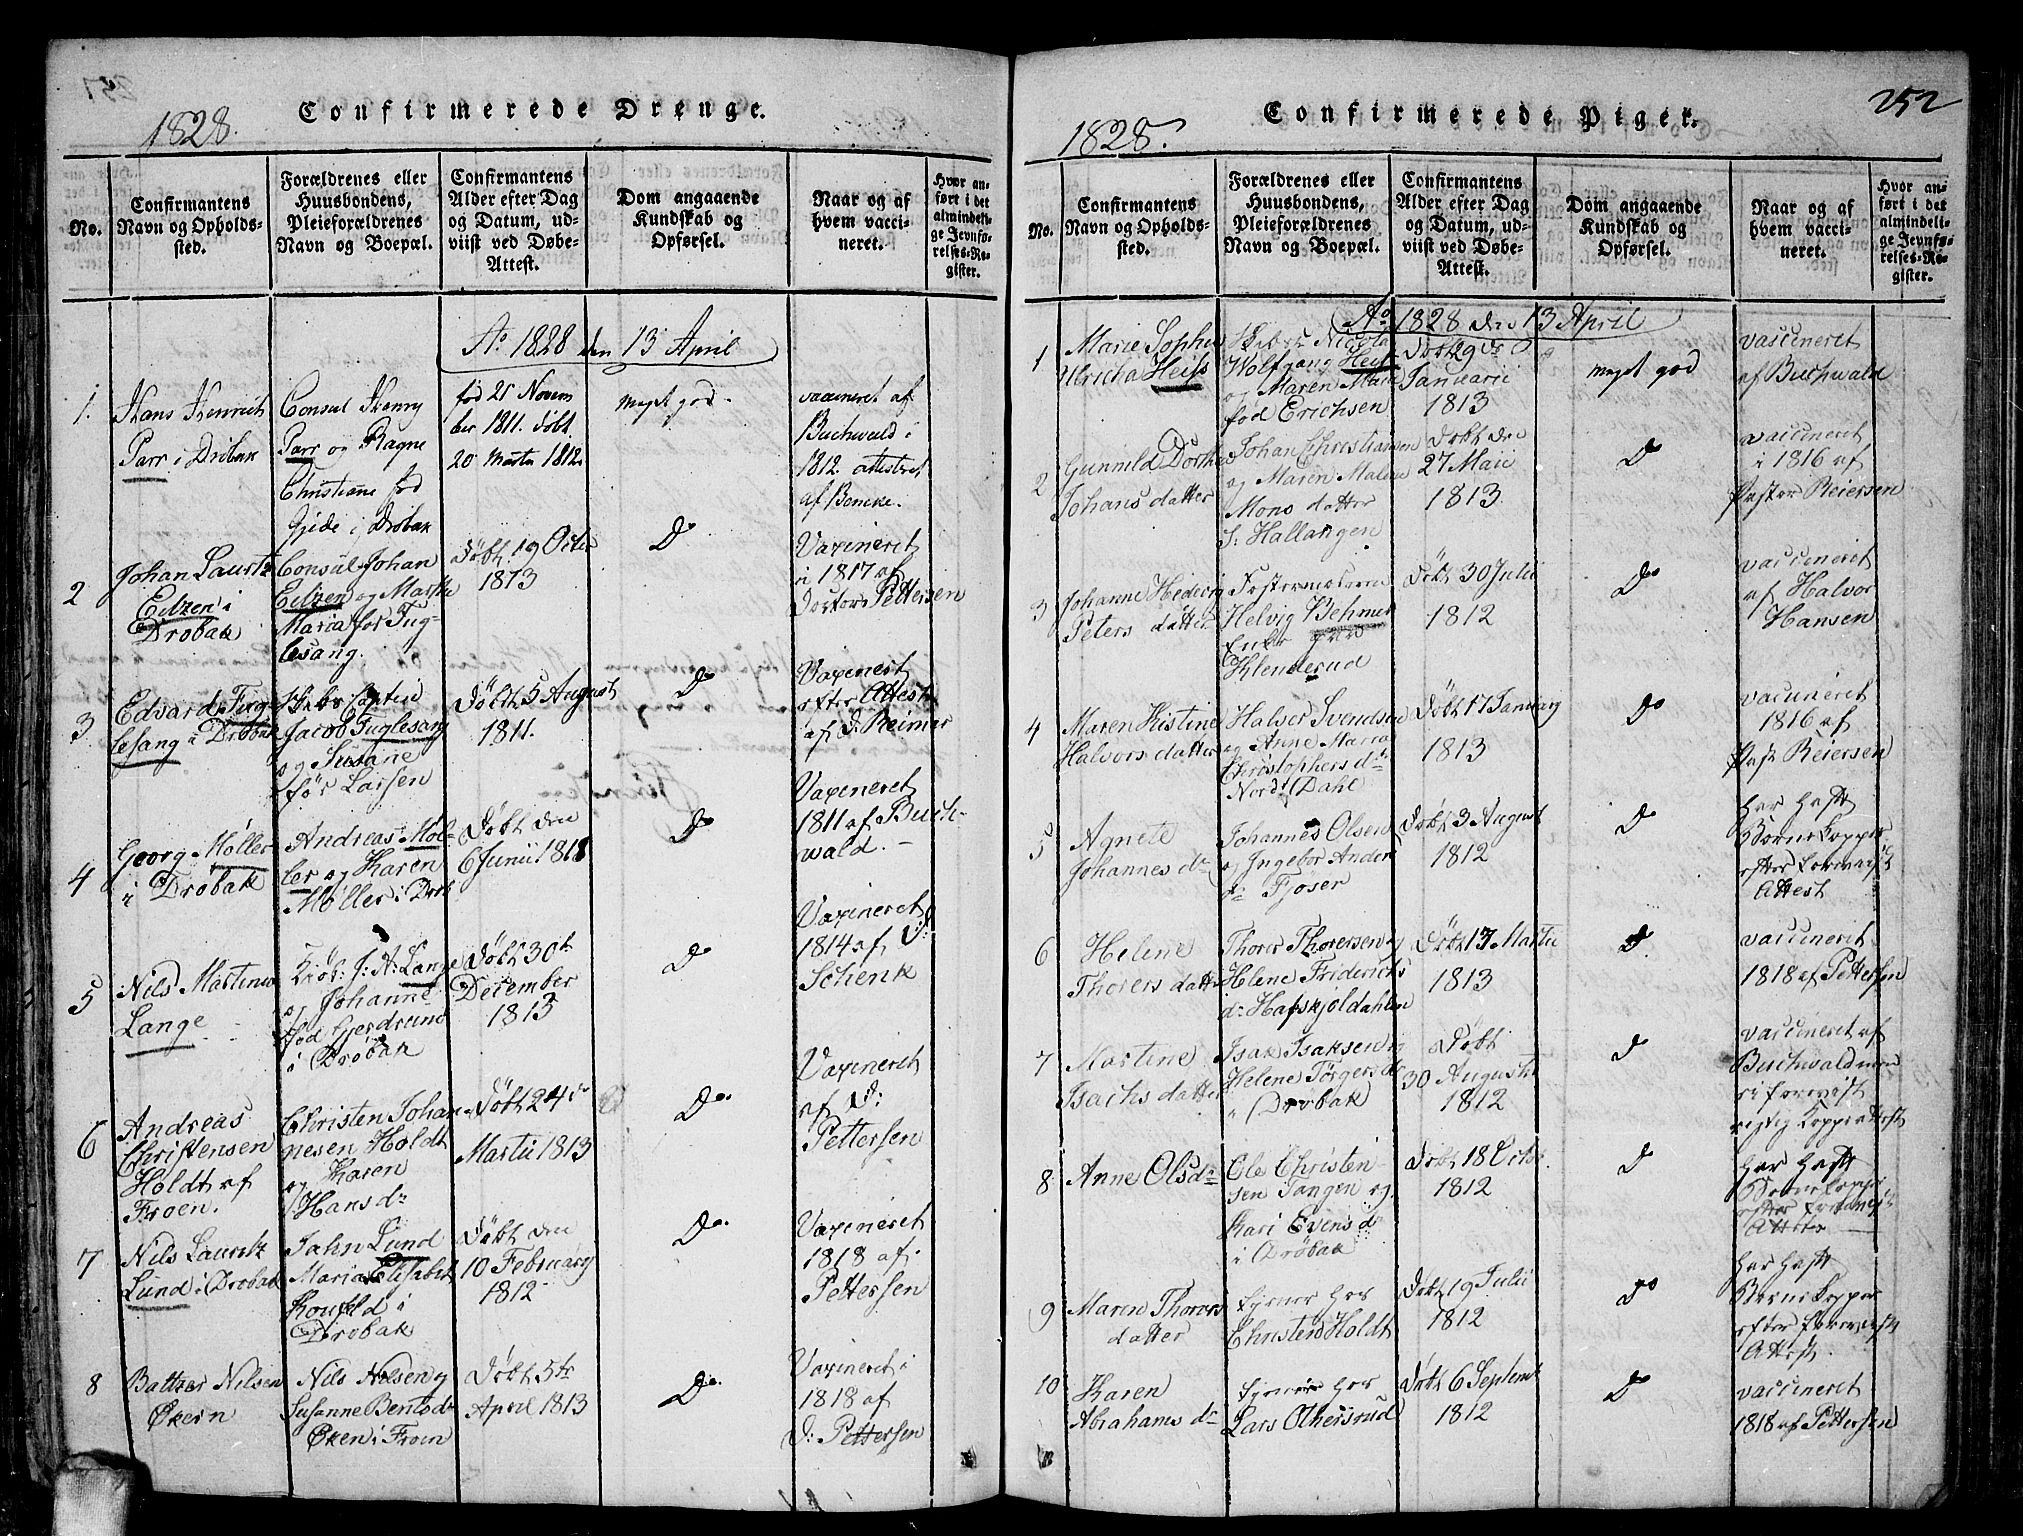 1828.
Confirmerede Drenge.
No.
Confirmantens
Navn og Opholds-
sted.
Forældrenes eller
Huusbondens,
Pleieforældrenes
Navn og Boepæl.
Confirmantens
Alder efter Dag
og Datum, ud-
viist ved Døbe-
Attest.
Dom angaaende
Kundskab og
Opførsel.
Naar og af
hvem vacci-
neret.
Hvor an-
ført i det
almindeli-
ge Jevnfø-
relses-Re-
gister.
Ao 1828 den 13 April
1.
Hans Henrich
Parr i Drøbak
Consul Henry
Parr og Ragne
Christiane fød
Gjede i Drøbak
fød 21 Novem
ber 1811. døbt
20 Martii 1812.
meget god.
vaccineret af
Buchwald i
1812 attesteret
af Bencke.
2
Johan Lauritz
Eilzen i
Drøbak
Consul Johan
Eilzen og Marthe
Maria fød Fug-
lesang.
Døbt 19 Octbr
1813
Do
Vaxineret
i 1817 af
Doctor Pettersen
3
Edvard Fug-
lesang i Drøbak
Skibs Captein
Jacob Fuglesang
og Susane
fød Larsen
Døbt 5 August
1811.
Do
Vaxineret
efter Attest
af D. Reimer
4
Georg Møller
i Drøbak
Andreas Møl-
ler og Karen
Møller i Drøb
Døbt den
6 Junii 1811
Do
Vaxineret
1811 af Buch-
wald. —
5
Nils Martinus
Lange
Kiøb: J: A: Lange
og Johanne
fød Gjerdrund
i Drøbak
Døbt 30te
December
1813
Do
Vaxineret
1814 af D:
Schenk
6
Andreas
Christensen
Holdt af
Froen.
Christen Johan
nesen Holdt
og Karen
Hans dr
Døbt 24de
Martii 1813
Do.
Vaxineret
af D:
Pettersen
7
Nils Lauritz
Lund i Drøbak
Jahn Lund
Maria Elisabet
Koufeld i
Drøbak
Døbt den
10 Februarij
1812
Do.
Vaxineret
1818 af
Pettersen
8
Baltzer Nilsen
Økern
Nils Nilsen og
Susanne Bents dr
Øken i Froen
Døbt 5te
April 1813
Do.
Vaxineret i
1818 af
D: Pettersen
252
1828.
Confirmerede Piger.
No.
Confirmantens
Navn og Opholds-
sted.
Forældrenes eller
Huusbondens,
Pleieforældrenes
Navn og Boepæl.
Confirmantens
Alder efter Dag
og Datum, ud-
viist ved Døbe-
Attest.
Dom angaaende
Kundskab og
Opførsel.
Naar og af
hvem vacci-
neret.
Hvor an-
ført i det
almindeli-
ge Jevnfø-
relses-Re-
gister.
Ao 1828 den 13 April
1
Marie Sophie
Ulricha Heiss
Nicolai
Wolfgang Heiss
og Maren Marie
fød Erichsen
Døbt 29de
Januarii
1813
meget god
vaccineret
af Buchwald
2
Gunnild Dorthe
Johans datter
Johan Christiansen
og Maren Malene
Mons datter
S: Hallangen
Døbt den
27 Maii
1813
Do
vaccineret
i 1816 af
Pastor Reiersen
3
Johanne Hedevig
Peters datter
Fostermoderen
Helvig Behmer
Enke paa
Klenderud
Døbt 30 Julii
1812
Do
vaccineret
af Halvor
Hansen
4
Maren Kistine
Halvors datter
Halvor Svendsen
og Anne Maria
Christophers dr
Nordt Dahl
Døbt 17 Januarij
1813
Do
vaccineret
1816 af
Past Reiersen
5
Agnete
Johannes dr
Johannes Olsen
og Ingebor Anders
dr Fjøser
Døbt 3 August
1812
Do
har haft
Børne Kopper
efter foreviist
Attest
6
Helene
Thorers datter
Thorer Thorersen og
Helene Friderichs
dr Hafskjoldahlen
Døbt 13 Martii
1813
Do
vaccineret
1818 af Pettersen
7
Martine
Isachs datter
Isak Isaksen og
Helene Torgers dr
i Drøbak
Døbt
30 Augusti
1812
Do
vaccineret af
Buchwald men
ei foreviist
rigtig Koppe Attest
8
Anne Olsdr
Ole Christen-
sen Tangen og
Kari Evens dr
i Drøbak
Døbt 18 Octbr.
1812
Do
har haft
Børnekopper
efter foreviist
Attest
9
Maren Thorers
datter
tjener hos
Christen Holdt
Døbt 19 Julii
1812
Do
har haft
Børnekopper
efter foreviist
Attest.
10
Karen
Abrahams dr
tjener hos
Lars Othersrud
Døbt 6 Septemr
1812
Do
vaccineret
1818 af Pettersen